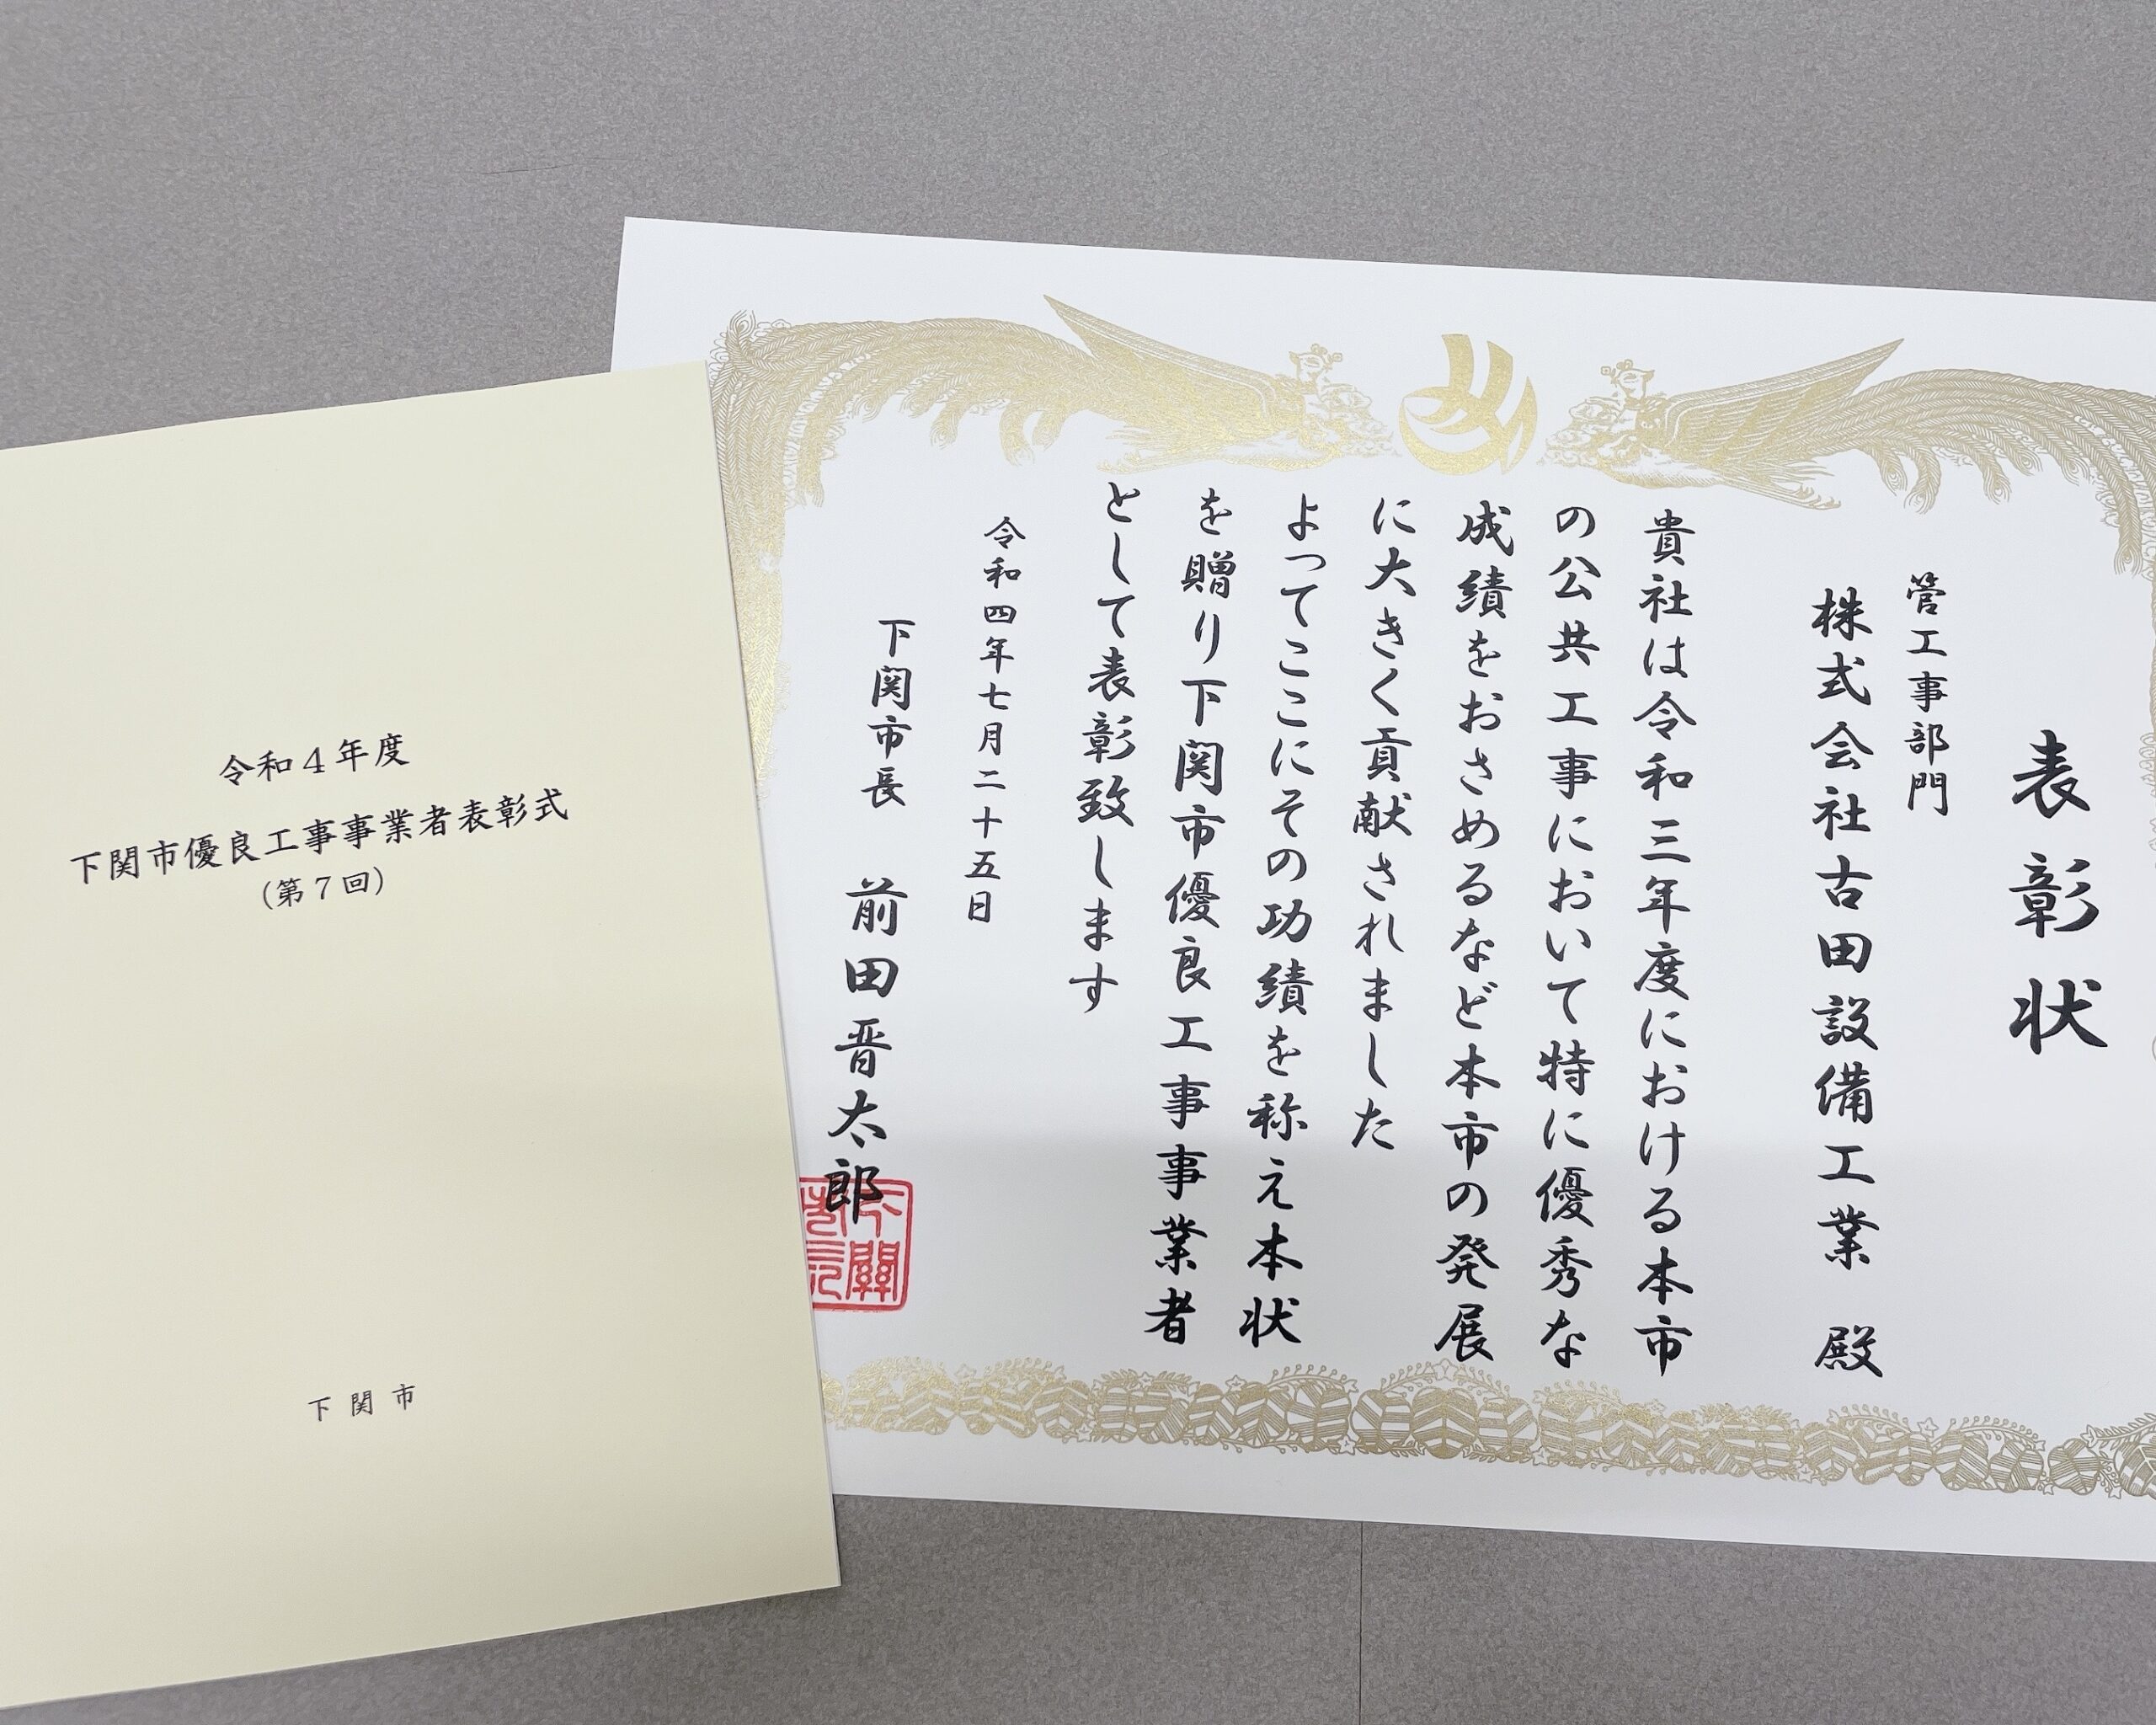 表彰状
管工事部門
株式会社古田設備工業 殿
貴社は令和三年度における本市
の公共工事において特に優秀な
成績をおさめるなど本市の発展
に大きく貢献されました
よってここにその功績を称え本状
を贈り下関市優良工事事業者
として表彰致します
令和四年七月二十五日
下関市長 前田晋太郎
令和4年度
下関市優良工事事業者表彰式
(第7回)
下関市